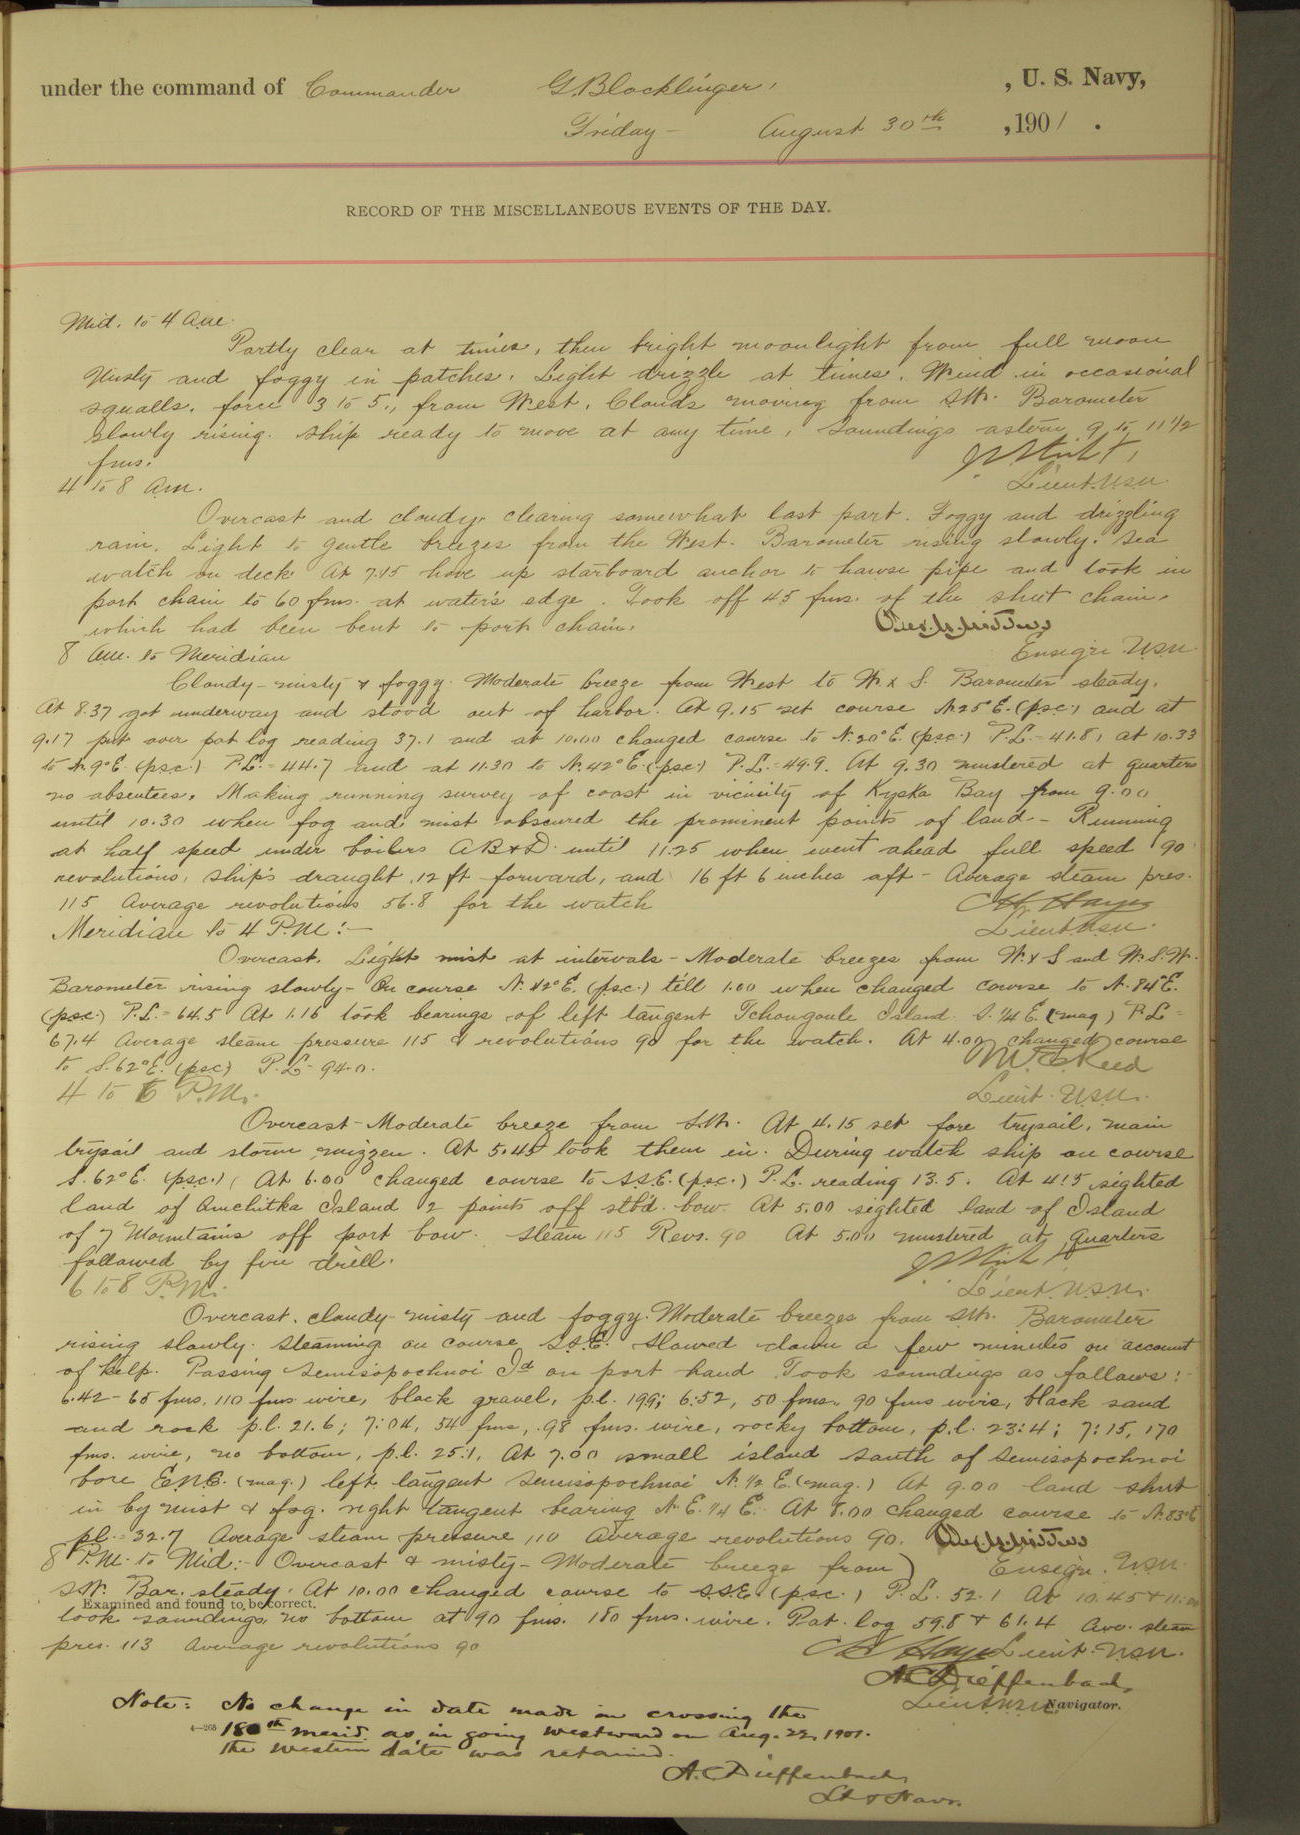 under the command of Commander G. Blocklinger, , U. S. Navy,
Friday - August 30th , 1901 .
RECORD OF THE MISCELLANEOUS EVENTS OF THE DAY.
Mid. to 4 a.m.
Partly clear at times, then bright moonlight from full moon
Misty and foggy in patches. Light drizzle at times. Wind in occasional
squalls, force 3 to 5, from West. Clouds moving from SW. Barometer
slowly rising. Ship ready to move at any time, soundings astern 9 to 11 1/2
fms.
Lieut. USN.
4 to 8 a.m.
Overcast and cloudy clearing somewhat last part. Foggy and drizzling
rain. Light to gentle breezes from the West. Barometer rising slowly. Sea
watch on deck. At 7.45 hove up starboard anchor to hawse pipe and took in
port chain to 60 fms. at water's edge. Took off 45 fms. of the sheet chain,
which had been bent to port chain.
Ensign USN.
8 a.m. to Meridian
Cloudy - misty & foggy. Moderate breeze from West to W x S. Barometer steady.
At 8.37 got underway and stood out of harbor. At 9.15 set course N.25°E. (p.s.c.) and at
9.17 put over pat log reading 37.1 and at 10.00 changed course to N. 20°E. (p.s.c.) P.L. - 41.8, at 10.33
to N. 9°E. (p.s.c.) P.L. - 44.7 and at 11.30 to N. 42°E. (p.s.c.) P.L. = 49.9. At 9.30 mustered at quarters
no absentees. Making running survey of coast in vicinity of Kyska Bay from 9.00
until 10.30 when fog and mist obscured the prominent points of land - Running
at half speed under boilers A B & D until 11.25 when went ahead full speed 90
revolutions, Ship's draught 12 ft forward, and 16 ft 6 inches aft - Average steam pres.
115 Average revolutions 56.8 for the watch
C H Hayes
Lieut USN.
Meridian to 4 P.M:-
Overcast. Light mist at intervals - Moderate breezes from W. x S and W.S.W.
Barometer rising slowly - On course N. 42°E. (p.s.c.) till 1.00 when changed course to N. 84°E.
(p.s.c.) P.L. = 64.5 At 1.16 took bearings of left tangent Tchougoule Island. S. 1/4 E. (mag) P.L =
67.4 Average steam pressure 115 & revolutions 90 for the watch. At 4.00 changed course
to S. 62°E. (psc) P.L - 94.0.
M. E Reed
Lieut. USN.
4 to 6 P.M.
Overcast - Moderate breeze from SW. At 4.15 set fore trysail, main
trysail and storm mizzen. At 5.45 took them in. During watch ship on course
S. 62°E. (p.s.c.), At 6.00 changed course to S.S.E. (p.s.c.) P.L. reading 13.5. At 4.15 sighted
land of Amchitka Island 2 points off stb'd. bow. At 5.00 sighted land of Island
of 7 Mountains off port bow. Steam 115 Revs. 90 At 5.00 mustered at quarters
followed by fire drill.
Lieut. USN.
6 to 8 P.M.
Overcast, cloudy - misty and foggy. Moderate breezes from SW. Barometer
rising slowly. Steaming on course S.S.E. Slowed down a few minutes on account
of kelp. Passing Semisopochnoi Id on port hand Took soundings as follows:-
6.42 - 65 fms, 110 fms wire, black gravel, p.l. 19.9; 6:52, 50 fms, 90 fms wire, black sand
and rock p.l. 21.6; 7:04, 54 fms, 98 fms. wire, rocky bottom, p.l. 23:4; 7:15, 170
fms. wire, no bottom, p.l. 25.1, At 7.00 small island south of Semisopochnoi
bore E.N.E. (mag.) left tangent Semisopochnoi N. 1/2 E. (mag.) At 9.00 land shut
in by mist & fog. right tangent bearing N. E. 1/4 E. At 8.00 changed course to N. 83°E
p.l. = 32.7 Average steam pressure 110 Average revolutions 90.
Ensign. USN.
8 P.M. to Mid:- Overcast & misty - Moderate breeze from
SW. Bar. steady. At 10.00 changed course to S.S.E. (p.s.c.) P.L. 52.1 At 10.45 & 11.00
Examined and found to be correct.
took soundings, no bottom at 90 fms. 180 fms. wire. Pat. log 59.8 & 61.4 Ave. steam
pres. 113 Average revolutions 90
C H Hayes Lieut. USN.
A. C. Dieffenbach,
Lieut USN. Navigator.
Note: No change in date made on crossing the
4-268 180th merid. as in going westward on Aug. 22, 1901.
the western date was retained.
A. C. Dieffenbach,
Lt & Navr.